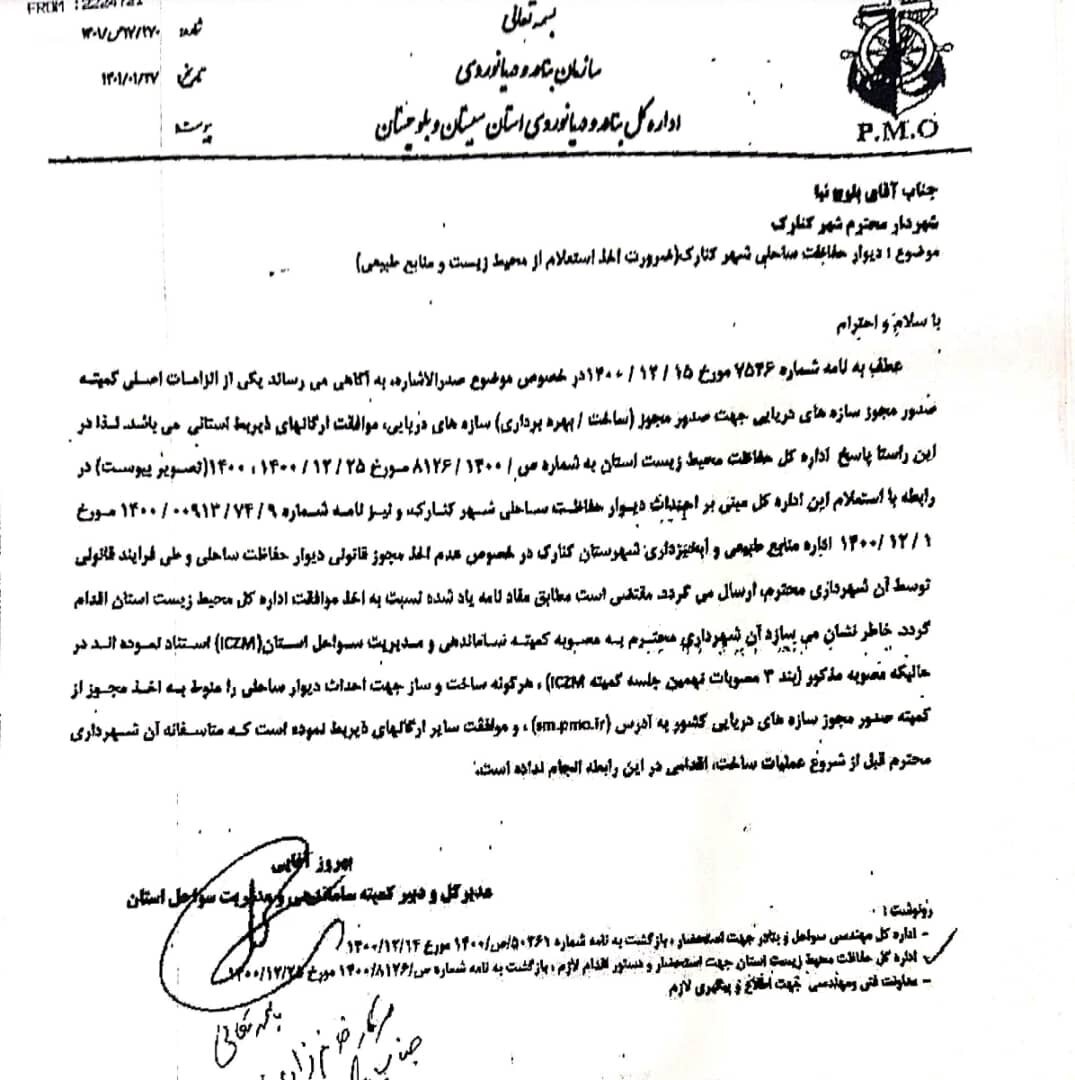 FROM :
بسمه تعالی
سازمان بنادر و دریانوردی
اداره کل بنادر و دریانوردی استان سیستان و بلوچستان
شماره: ۱۴۰۱/ص/۱۷/۲۷۰
تاریخ: ۱۴۰۱/۰۱/۲۷
پیوست:
P.M.O
جناب آقای بلوچ نیا
شهردار محترم شهر کنارک
موضوع : دیوار حفاظت ساحلی شهر کنارک(ضرورت اخذ استعلام از محیط زیست و منابع طبیعی)
با سلام و احترام
عطف به نامه شماره ۷۵۳۶ مورخ ۱۵ / ۱۲ / ۱۴۰۰در خصوص موضوع صدرالاشاره، به آگاهی می رساند یکی از الزامات اصلی کمیته
صدور مجوز سازه های دریایی جهت صدور مجوز (ساخت / بهره برداری) سازه های دریایی، موافقت ارگانهای ذیربط استانی می باشد. لذا در
این راستا پاسخ اداره کل حفاظت محیط زیست استان به شماره ص / ۱۴۰۰ / ۸۱۲۶ مورخ ۲۵ / ۱۲ / ۱۴۰۰ ، ۱۴۰۰(تصویر پیوست) در
رابطه با استعلام این اداره کل مبنی بر احداث دیوار حفاظت ساحلی شهر کنارک، و نیز نامه شماره ۹ / ۷۴ / ۰۰۹۱۳ / ۱۴۰۰ مورخ
۱ / ۱۲ / ۱۴۰۰ اداره منابع طبیعی و آبخیزداری شهرستان کنارک در خصوص عدم اخذ مجوز قانونی دیوار حفاظت ساحلی و طی فرایند قانونی
توسط آن شهرداری محترم، ارسال می گردد. مقتضی است مطابق مفاد نامه یاد شده نسبت به اخذ موافقت اداره کل محیط زیست استان اقدام
گردد. خاطر نشان می سازد آن شهرداری محترم به مصوبه کمیته ساماندهی و مدیریت سواحل استان(ICZM) استناد نموده اند در
حالیکه مصوبه مذکور (بند ۳ مصوبات نهمین جلسه کمیته ICZM) ، هرگونه ساخت و ساز جهت احداث دیوار ساحلی را منوط به اخذ مجوز از
کمیته صدور مجوز سازه های دریایی کشور به آدرس (sm.pmo.ir) ، و موافقت سایر ارگانهای ذیربط نموده است که متاسفانه آن شهرداری
محترم قبل از شروع عملیات ساخت، اقدامی در این رابطه انجام نداده است.
بهروز آقایی
مدیرکل و دبیر کمیته ساماندهی و مدیریت سواحل استان
رونوشت :
- اداره کل مهندسی سواحل و بنادر جهت استحضار ، بازگشت به نامه شماره ۵۰۳۶۱/ص/۱۴۰۰ مورخ ۱۴۰۰/۱۲/۱۴
- اداره کل حفاظت محیط زیست استان جهت استحضار و دستور اقدام لازم ، بازگشت به نامه شماره ص/۱۴۰۰/۸۱۲۶ مورخ ۱۴۰۰/۱۲/۲۵
- معاونت فنی ومهندسی جهت اطلاع و پیگیری لازم
باسمه تعالی
سرکار خانم
جناب